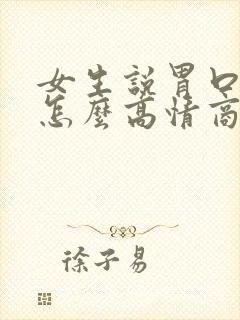 女生說胃口
怎麼高情商
徐子易